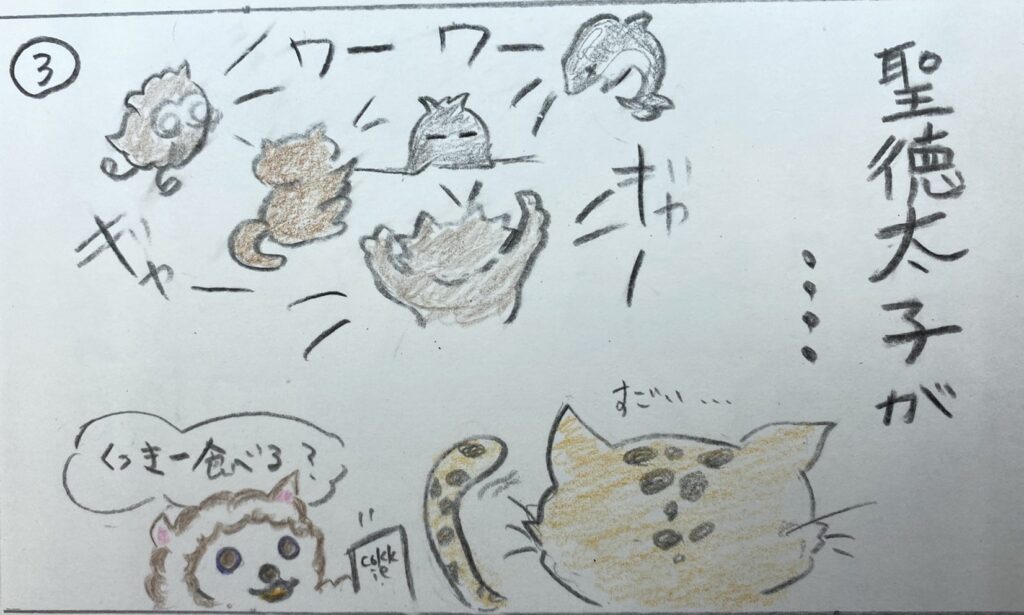 ③
ワーワー
聖徳太子が
・・・・
ギャー
ギャー
すごい...
くっきー食べる?
cokk
ie